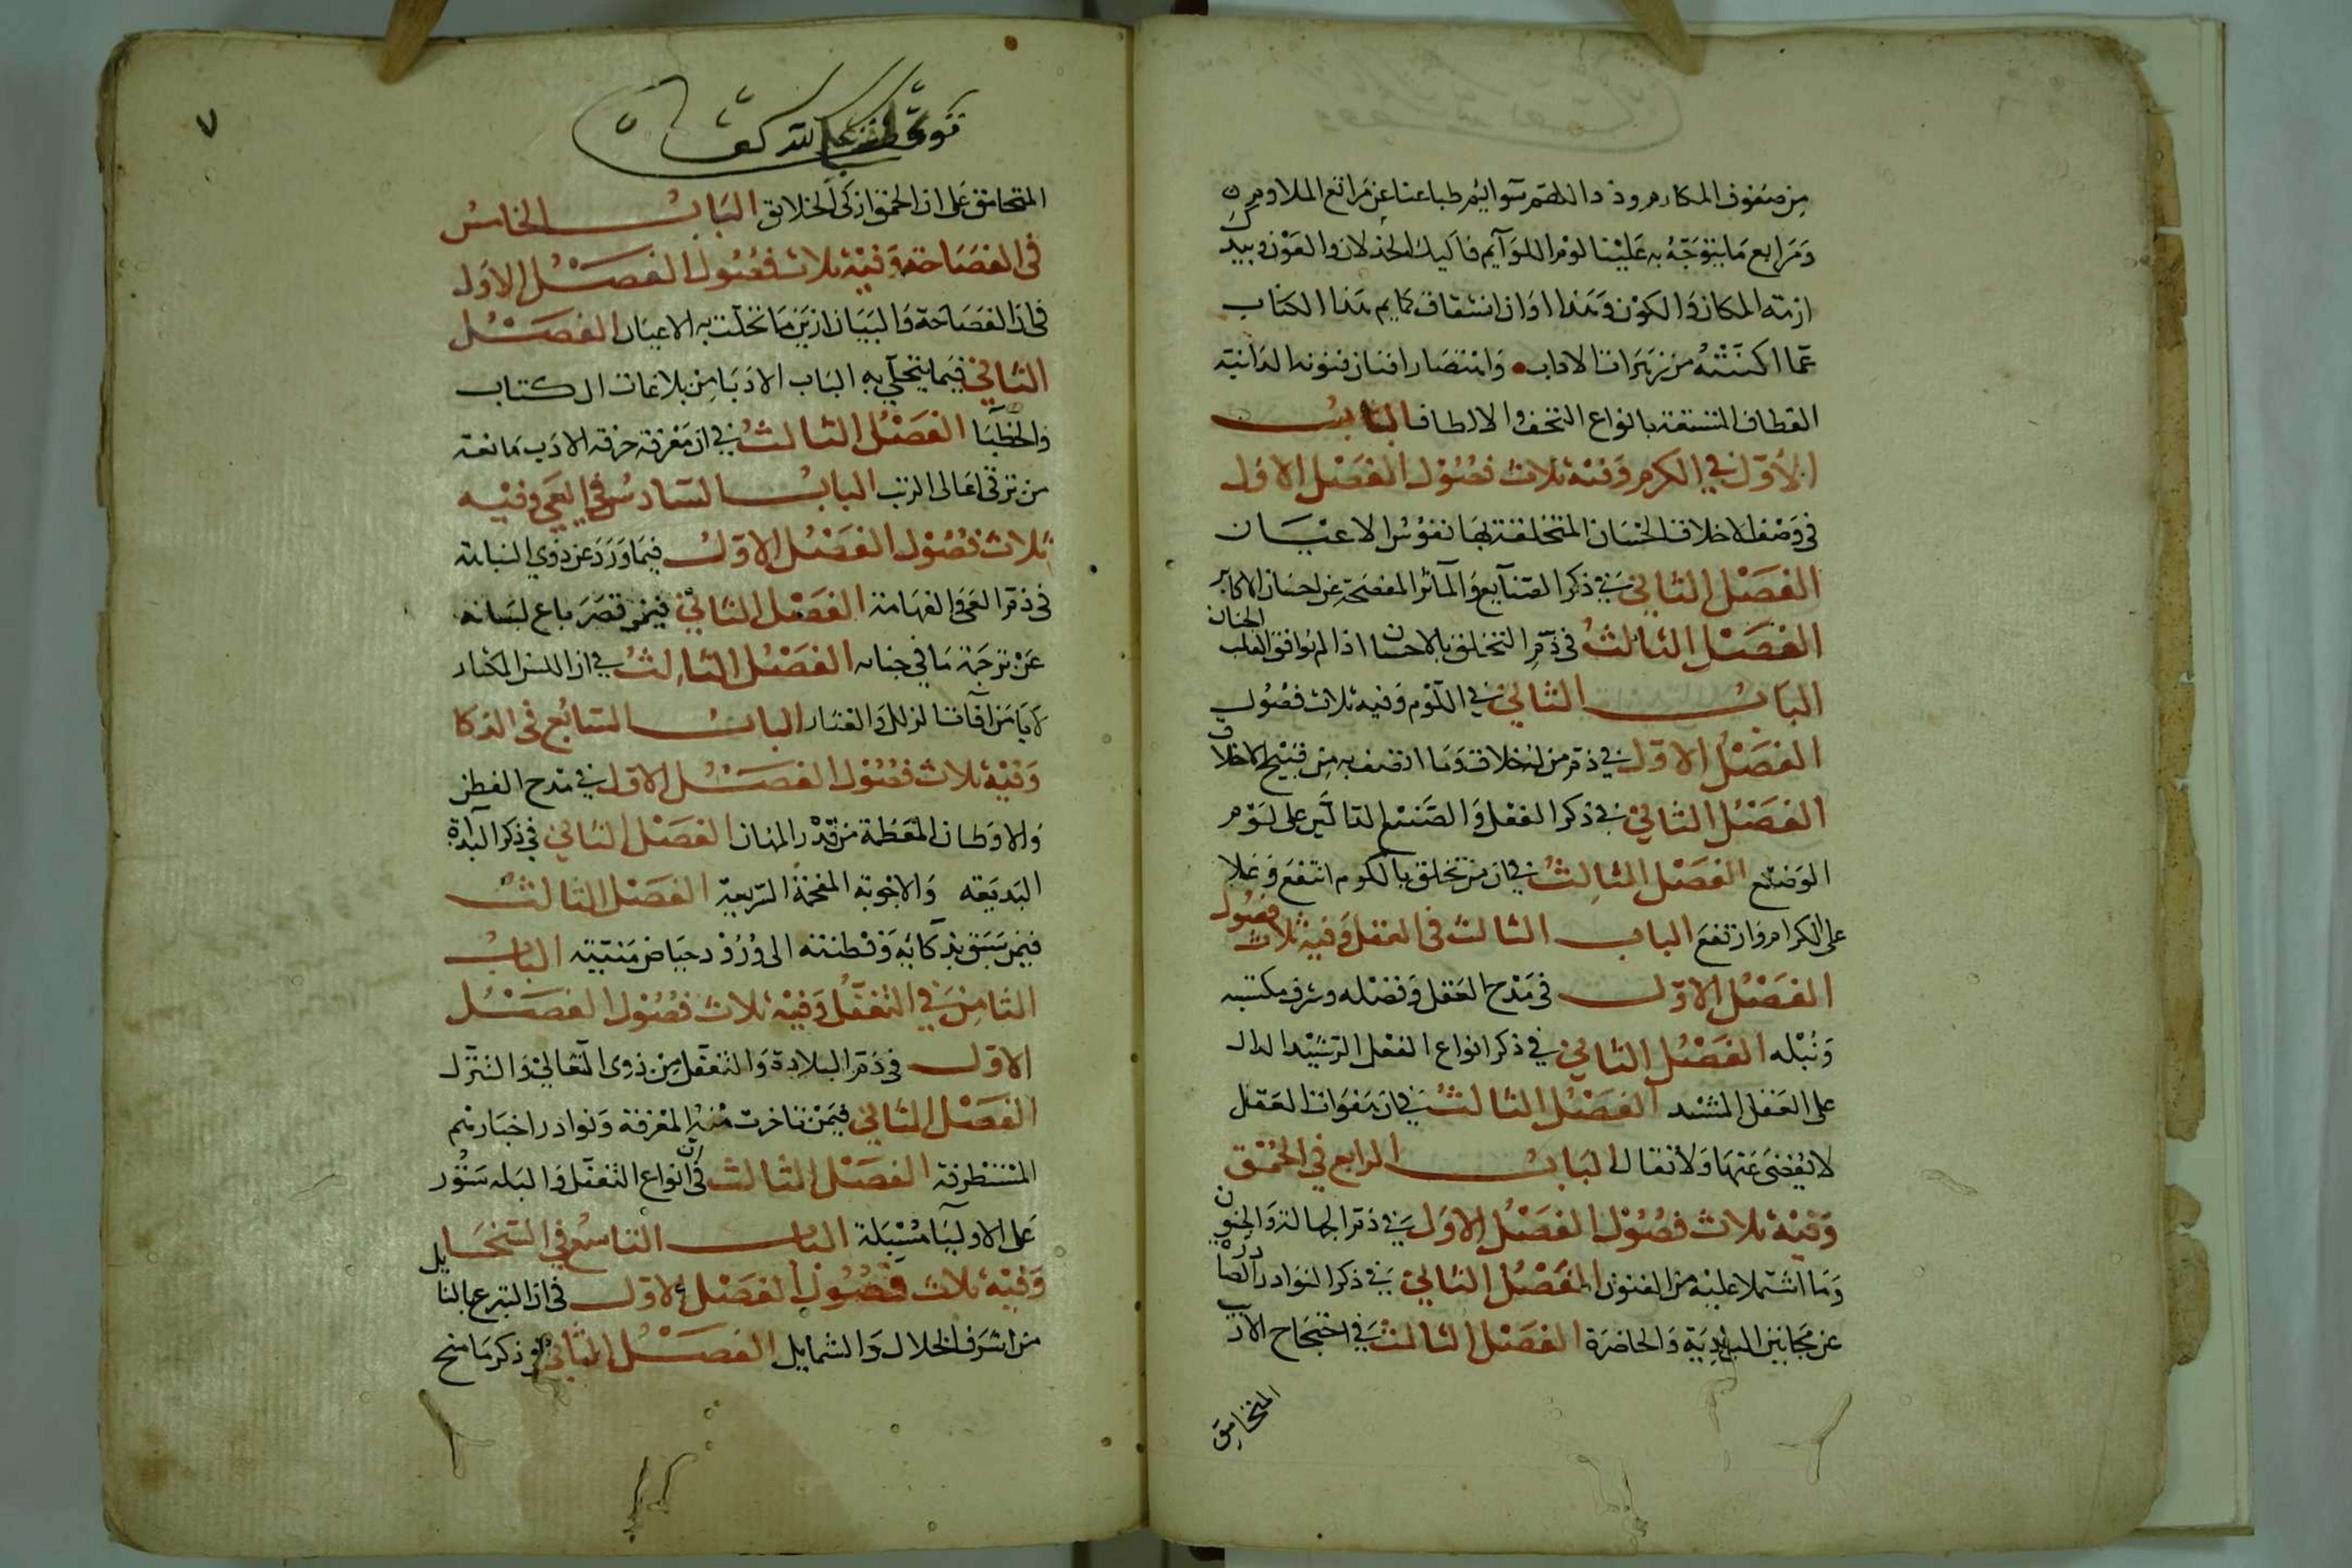 من صفوف المكارم وذد اللهم سوايم طباعنا عن مراتع الملاوم
ومرابع ما يتوجه به علينا لوم اللوآيم فاليك الخذلان والعون وبيدك
ازمة المكان والكون وهذا اوان انشقاق كمايم هذا الكتاب
عما اكنته من زهرات الاداب وانتصار افنان فنونه الدانية
القطاف المتسقة بانواع التحف والالطاف الباب
الاول في الكرم وفيه ثلاث فصول الفصل الاول
في وصف الاخلاق الحسان المتخلقة بها نفوس الاعيان
الفصل الثاني في ذكر الصنآيع والمآثر المفصحة عن احسان الاكابر
الفصل الثالث في ذم التخلق بالاحسان اذا لم يوافق القلب الجنان
الباب الثاني في اللوم وفيه ثلاث فصول
الفصل الاول في ذم من اخلاق وما اتصف به من قبيح الاخلاق
الفصل الثاني في ذكر الفعل والصنيع الدالين على لؤم
الوضيع الفصل الثالث في ان من تخلق بالكوم انتفع وعلا
على الكرام وارتفع الباب الثالث في العقل وفيه ثلاث فصول
الفصل الاول في مدح العقل وفضله وشرف مكتسبه
ونبله الفصل الثاني في ذكر انواع الفعل الرشيد الدال
على العقل المشيد الفصل الثالث في ان هفوات العقل
لا يغضى عنها ولا تقال الباب الرابع في الحمق
وفيه ثلاث فصول الفصل الاول في ذم الجهالة والجنون
وما اشتملا عليه من الفنون الفصل الثاني في ذكر النوادر الصادرة
عن مجانين البادية والحاضرة الفصل الثالث في احتجاج الاديب
المتحامق
٧
المتحامق على ان الحمق ازكى الخلائق الباب الخامس
في الفصاحة وفيه ثلاث فصول الفصل الاول
في ان الفصاحة والبيان ازين ما تحلت به الاعيان الفصل
الثاني فيما يتحلى به الباب الادبا من بلاغات الكتاب
والخطبا الفصل الثالث في ان معرفة حرفة الادب مانعة
من ترقى اعالى الرتب الباب السادس في العي وفيه
ثلاث فصول الفصل الاول فيما ورد عن ذوي النباهة
في ذم العي والفهامة الفصل الثاني فيمن قصر باع لسانه
عن ترجمة ما في جنانه الفصل الثالث في ان اللسن المكثار
لا يامن افات الزلل والعثار الباب السابع في الذكا
وفيه ثلاث فصول الفصل الاول في مدح الفطن
والاوطان المعظمة من قدر المهان الفصل الثاني في ذكر البداة
البديعة والاجوبة المفحمة السريعة الفصل الثالث
فيمن سبق بذكائه وفطنته الى ورود حياض منيته الباب
الثامن في التغفل وفيه ثلاث فصول الفصل
الاول في ذم البلادة والتغفل من ذوى التعالي والتنزل
الفصل الثاني فيمن تاخرت منه المعرفة ونوادر اخبارهم
المستظرفة الفصل الثالث في ان انواع التغفل والبله ستور
على الاوليا مسبلة الباب التاسع في السخا
وفيه ثلاث فصول الفصل الاول في ان التبرع بالنايل
من اشرف الخلال والشمايل الفصل الثاني في ذكر ما منح